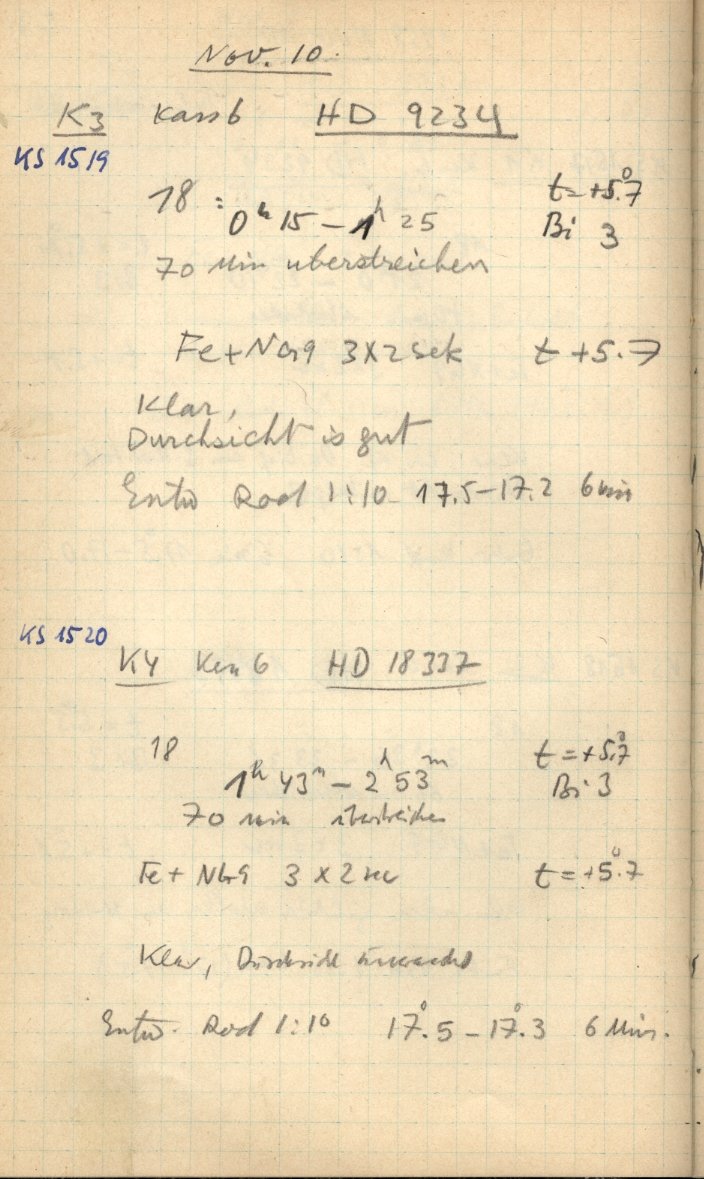 Nov. 10.
K3 Kass 6 HD 9234
KS 1519
18 : t=+5°.7
0h 15 – 1h 25 Bi 3
70 Min uberstreichen
Fe+ 3x2 sek t +5.7
Klar,
Durchsicht is gut
Entw Rod 1:10 17.5–17.2 6 min
KS 1520
K4 6 HD 18337
18 t=+5°.7
1h 43m – 2h 53m Bi 3
70 min überstreichen
Fe+ 3 x 2 sec t=+5°.7
Klar, Durchsicht
Entw. Rod 1:10 17°.5 – 17°.3 6 Min.